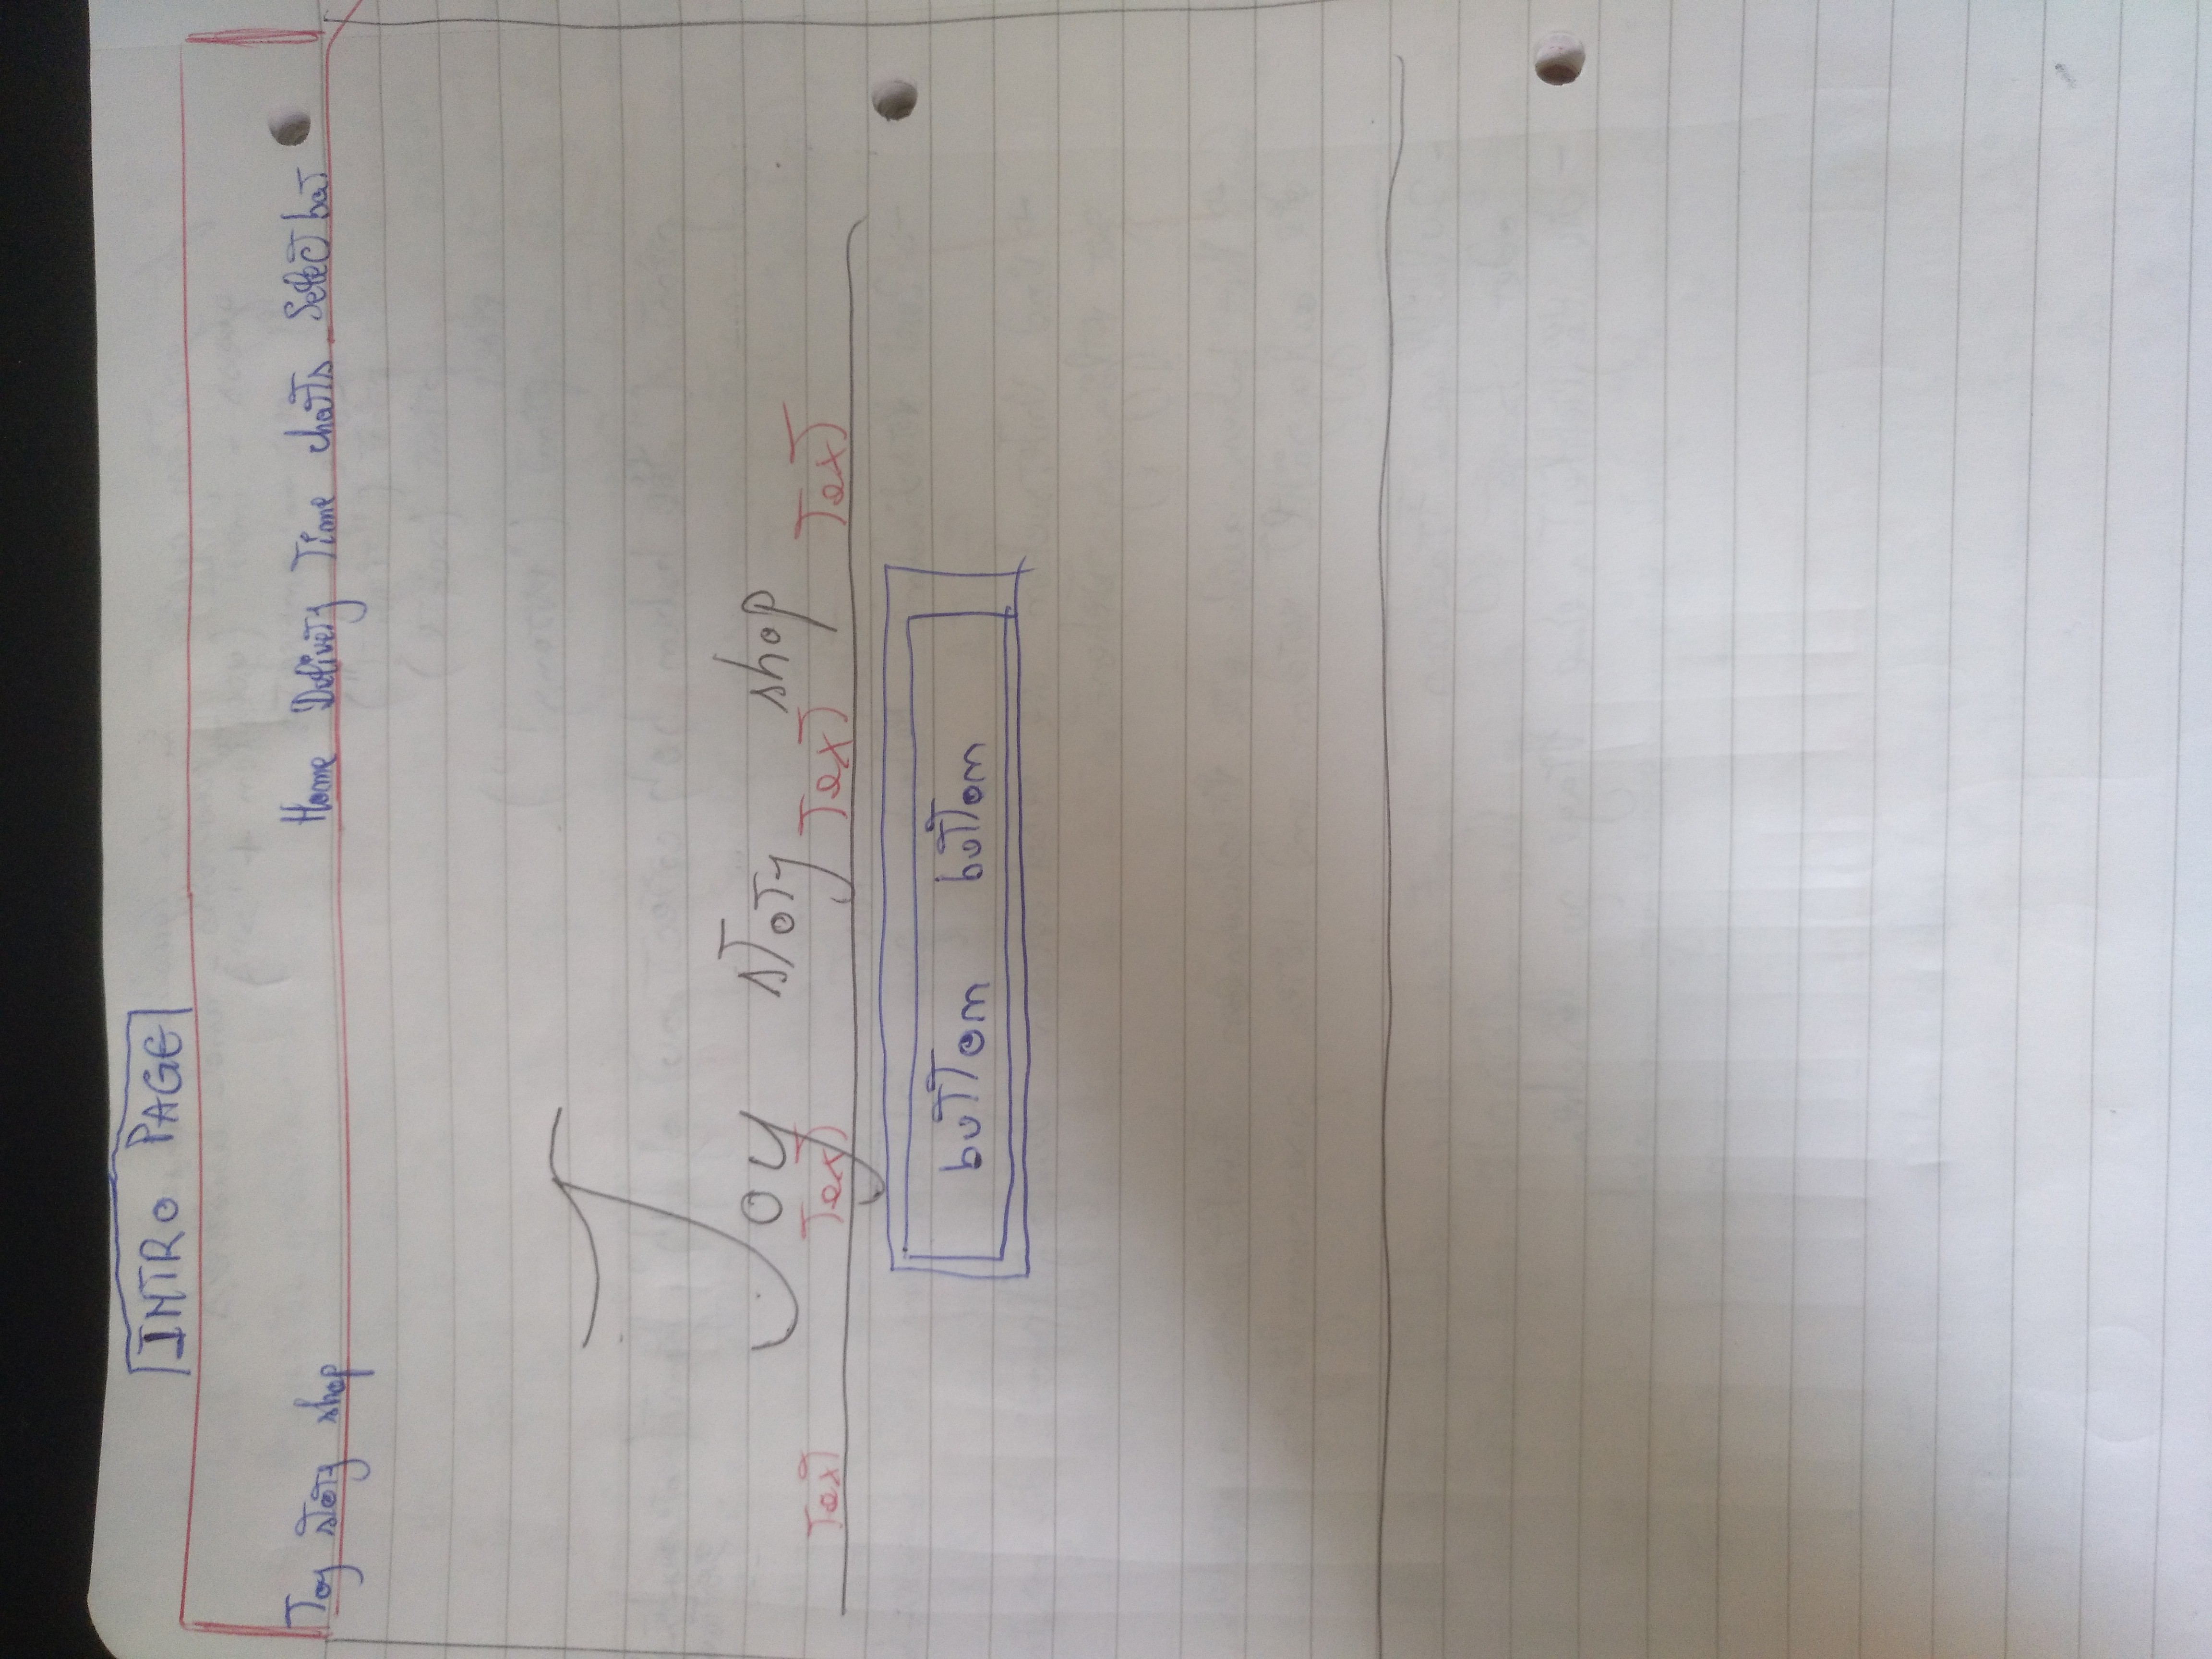 INTRO PAGE
Toy story shop Home Delivery Time charts Select bar
Toy story shop
Text Text Text Text
button button